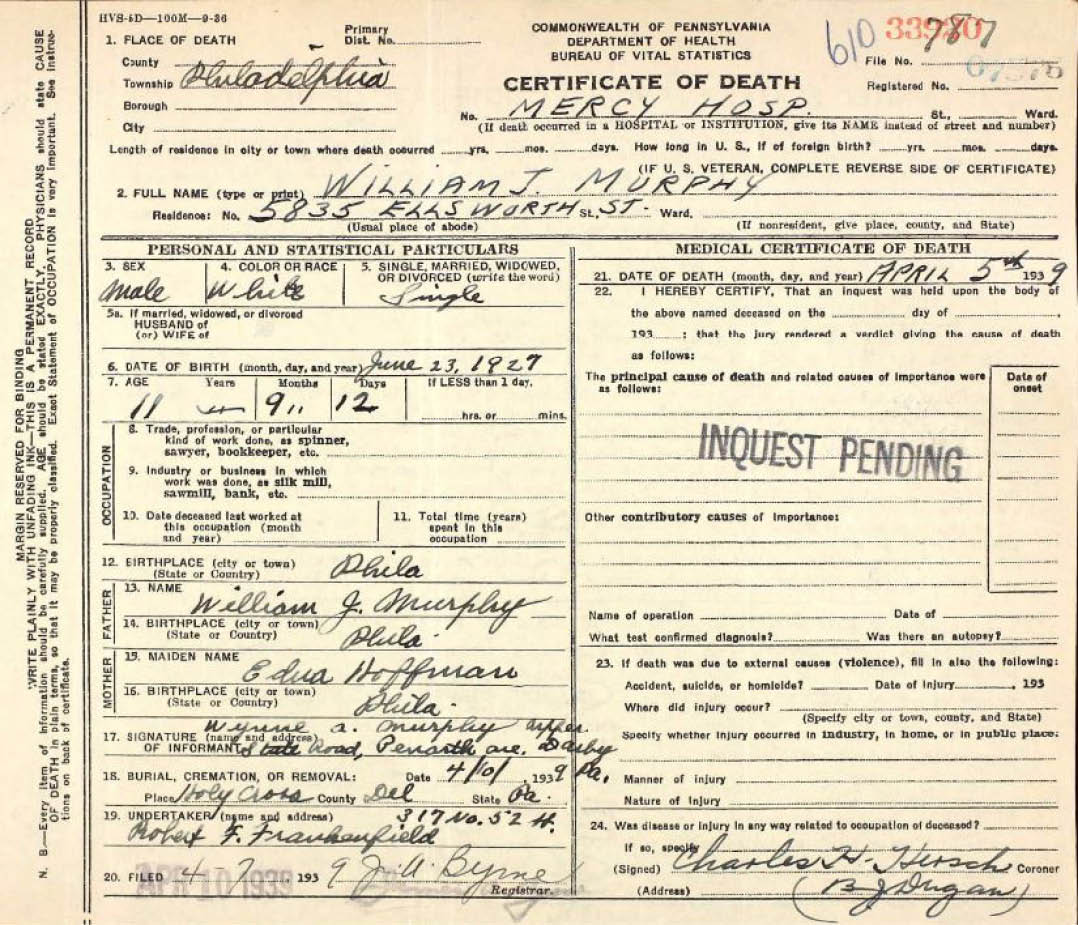 HVS-5D—100M—9-36
COMMONWEALTH OF PENNSYLVANIA
DEPARTMENT OF HEALTH
BUREAU OF VITAL STATISTICS
CERTIFICATE OF DEATH
610 33920
787
File No.
Registered No.
1. PLACE OF DEATH
Primary
Dist. No.
County
Township Philadelphia
Borough
City
No. MERCY HOSP. St., Ward.
(If death occurred in a HOSPITAL or INSTITUTION, give its NAME instead of street and number)
Length of residence in city or town where death occurred yrs. mos. days. How long in U. S., if of foreign birth? yrs. mos. days.
(IF U. S. VETERAN, COMPLETE REVERSE SIDE OF CERTIFICATE)
2. FULL NAME (type or print) WILLIAM J. MURPHY
Residence: No. 5835 ELLSWORTH St., ST. Ward.
(Usual place of abode) (If nonresident, give place, county, and State)
PERSONAL AND STATISTICAL PARTICULARS
3. SEX
Male
4. COLOR OR RACE
White
5. SINGLE, MARRIED, WIDOWED,
OR DIVORCED (write the word)
Single
5a. If married, widowed, or divorced
HUSBAND of
(or) WIFE of
6. DATE OF BIRTH (month, day, and year) June 23, 1927
7. AGE Years Months Days If LESS than 1 day,
11 9 12 hrs. or mins.
OCCUPATION
8. Trade, profession, or particular
kind of work done, as spinner,
sawyer, bookkeeper, etc.
9. Industry or business in which
work was done, as silk mill,
sawmill, bank, etc.
10. Date deceased last worked at
this occupation (month
and year)
11. Total time (years)
spent in this
occupation
12. BIRTHPLACE (city or town) Phila
(State or Country)
FATHER
13. NAME
William J. Murphy
14. BIRTHPLACE (city or town)
(State or Country) Phila.
MOTHER
15. MAIDEN NAME
Edna Hoffman
16. BIRTHPLACE (city or town)
(State or Country) Phila.
Wynne A. Murphy Upper
17. SIGNATURE (name and address)
OF INFORMANT State Road, Penarth ave. Darby
Pa.
18. BURIAL, CREMATION, OR REMOVAL: Date 4/10/, 1939
Place Holy Cross County Del State Pa.
19. UNDERTAKER (name and address) 317 No. 52 St.
Robert F. Frankenfield
20. FILED 4 7 1939 J. A. Byrne
APR 10 1939
Registrar.
MEDICAL CERTIFICATE OF DEATH
21. DATE OF DEATH (month, day, and year) APRIL 5th 1939
22. I HEREBY CERTIFY, That an inquest was held upon the body of
the above named deceased on the day of ,
193 ; that the jury rendered a verdict giving the cause of death
as follows:
The principal cause of death and related causes of importance were
as follows:
Date of
onset
INQUEST PENDING
Other contributory causes of importance:
Name of operation Date of
What test confirmed diagnosis? Was there an autopsy?
23. If death was due to external causes (violence), fill in also the following:
Accident, suicide, or homicide? Date of injury , 193
Where did injury occur?
(Specify city or town, county, and State)
Specify whether injury occurred in industry, in home, or in public place:
Manner of injury
Nature of injury
24. Was disease or injury in any way related to occupation of deceased?
If so, specify
(Signed) Charles H. Hersch Coroner
(Address) (B J Dugan)
MARGIN RESERVED FOR BINDING
WRITE PLAINLY WITH UNFADING INK—THIS IS A PERMANENT RECORD
N. B.—Every item of information should be carefully supplied. AGE should be stated EXACTLY. PHYSICIANS should state CAUSE
OF DEATH in plain terms, so that it may be properly classified. Exact Statement of OCCUPATION is very important. See instruc-
tions on back of certificate.